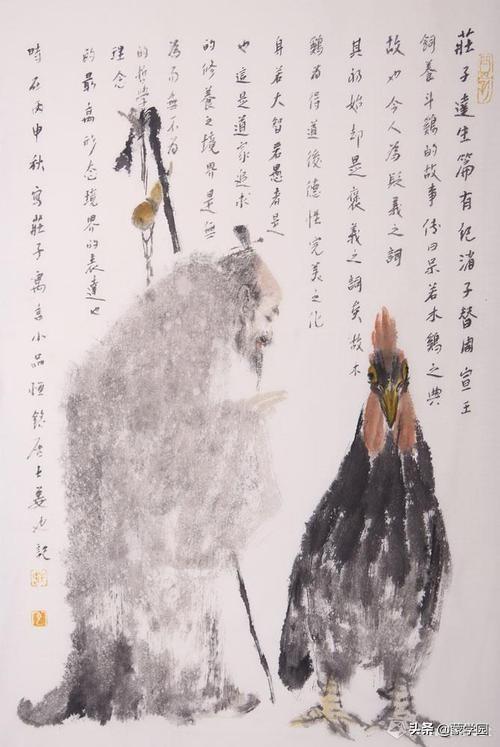 莊子達生篇有紀渻子替周宣王
飼養斗鷄的故事傳曰呆若木鷄之典
故也今人為貶義之詞
其初始却是褒義之詞矣故木
鷄为得道後德性完美之化
身若大智若愚者是
也這是道家追求
的修養之境界是無
為而無不为
的哲學
理念
的最高形态境界的表達也
時在丙申秋寫莊子寓言小品恒銘居士姜
記
头条@蒙学园